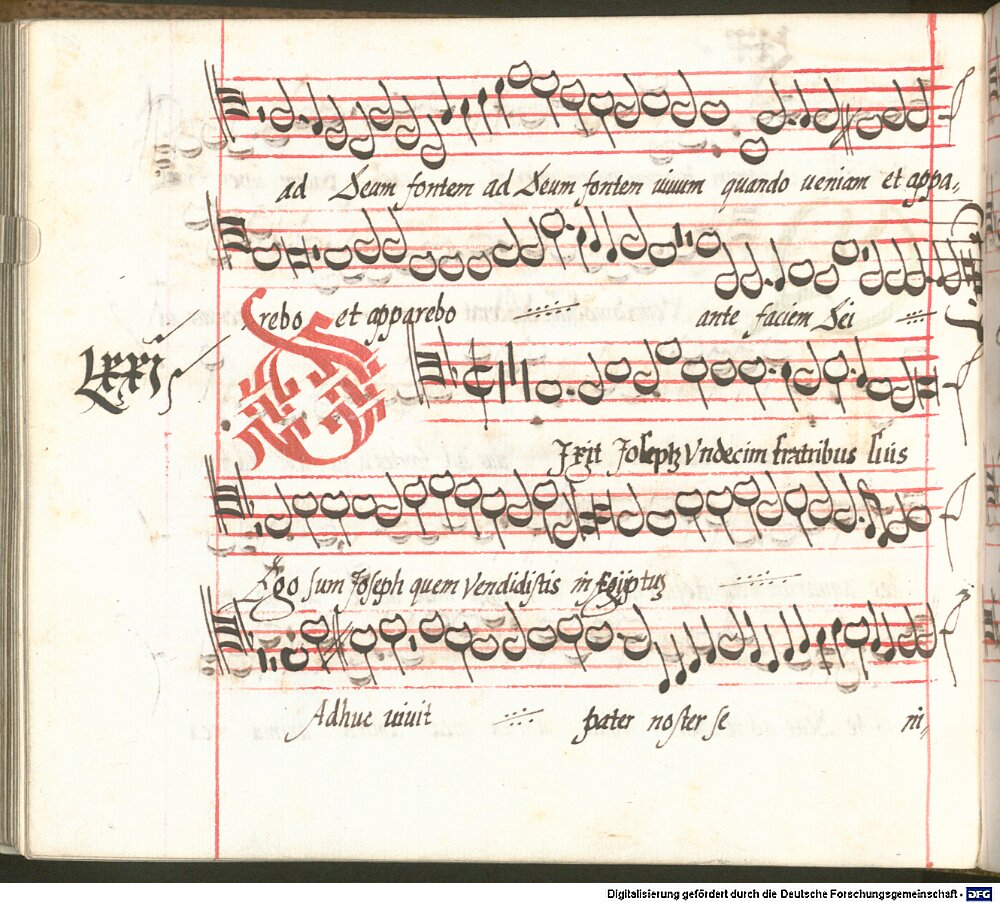 ad Deum fontem ad Deum fontem uiuum quando ueniam et appa,,
rebo et apparebo ante faciem Dei
LXXI
D Ixit Joseph Vndecim fratribus suis
Ego sum Joseph quem vendidistis in Egiptũ
Adhuc uiuit pater noster se ni,,
Digitalisierung gefördert durch die Deutsche Forschungsgemeinschaft - DFG